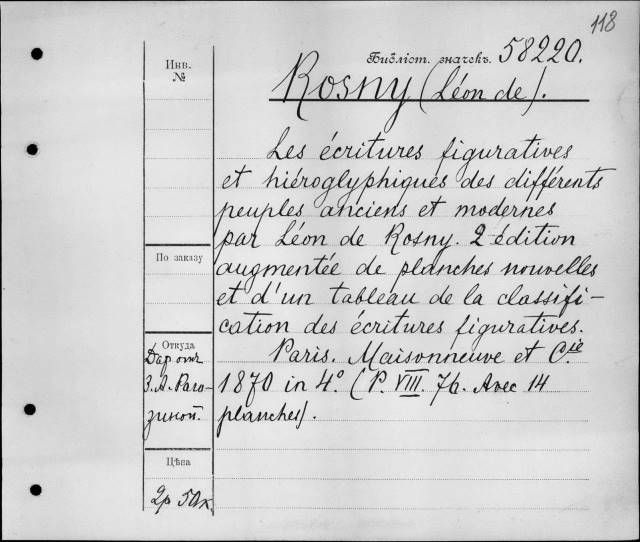 118
Библіот. значекъ. 58220.
Rosny (Léon de).
Инв.
№
Les écritures figuratives
et hiéroglyphiques des différents
peuples anciens et modernes
par Léon de Rosny. 2 édition
По заказу
augmentée de planches nouvelles
et d'un tableau de la classifi-
cation des écritures figuratives.
Откуда
Paris. Maisonneuve et Cie.
Дар отъ
З. А. Раго-
зиной.
1870 in 4º. (P. VIII. 76. Avec 14
planches).
Цѣна
2р 50к.